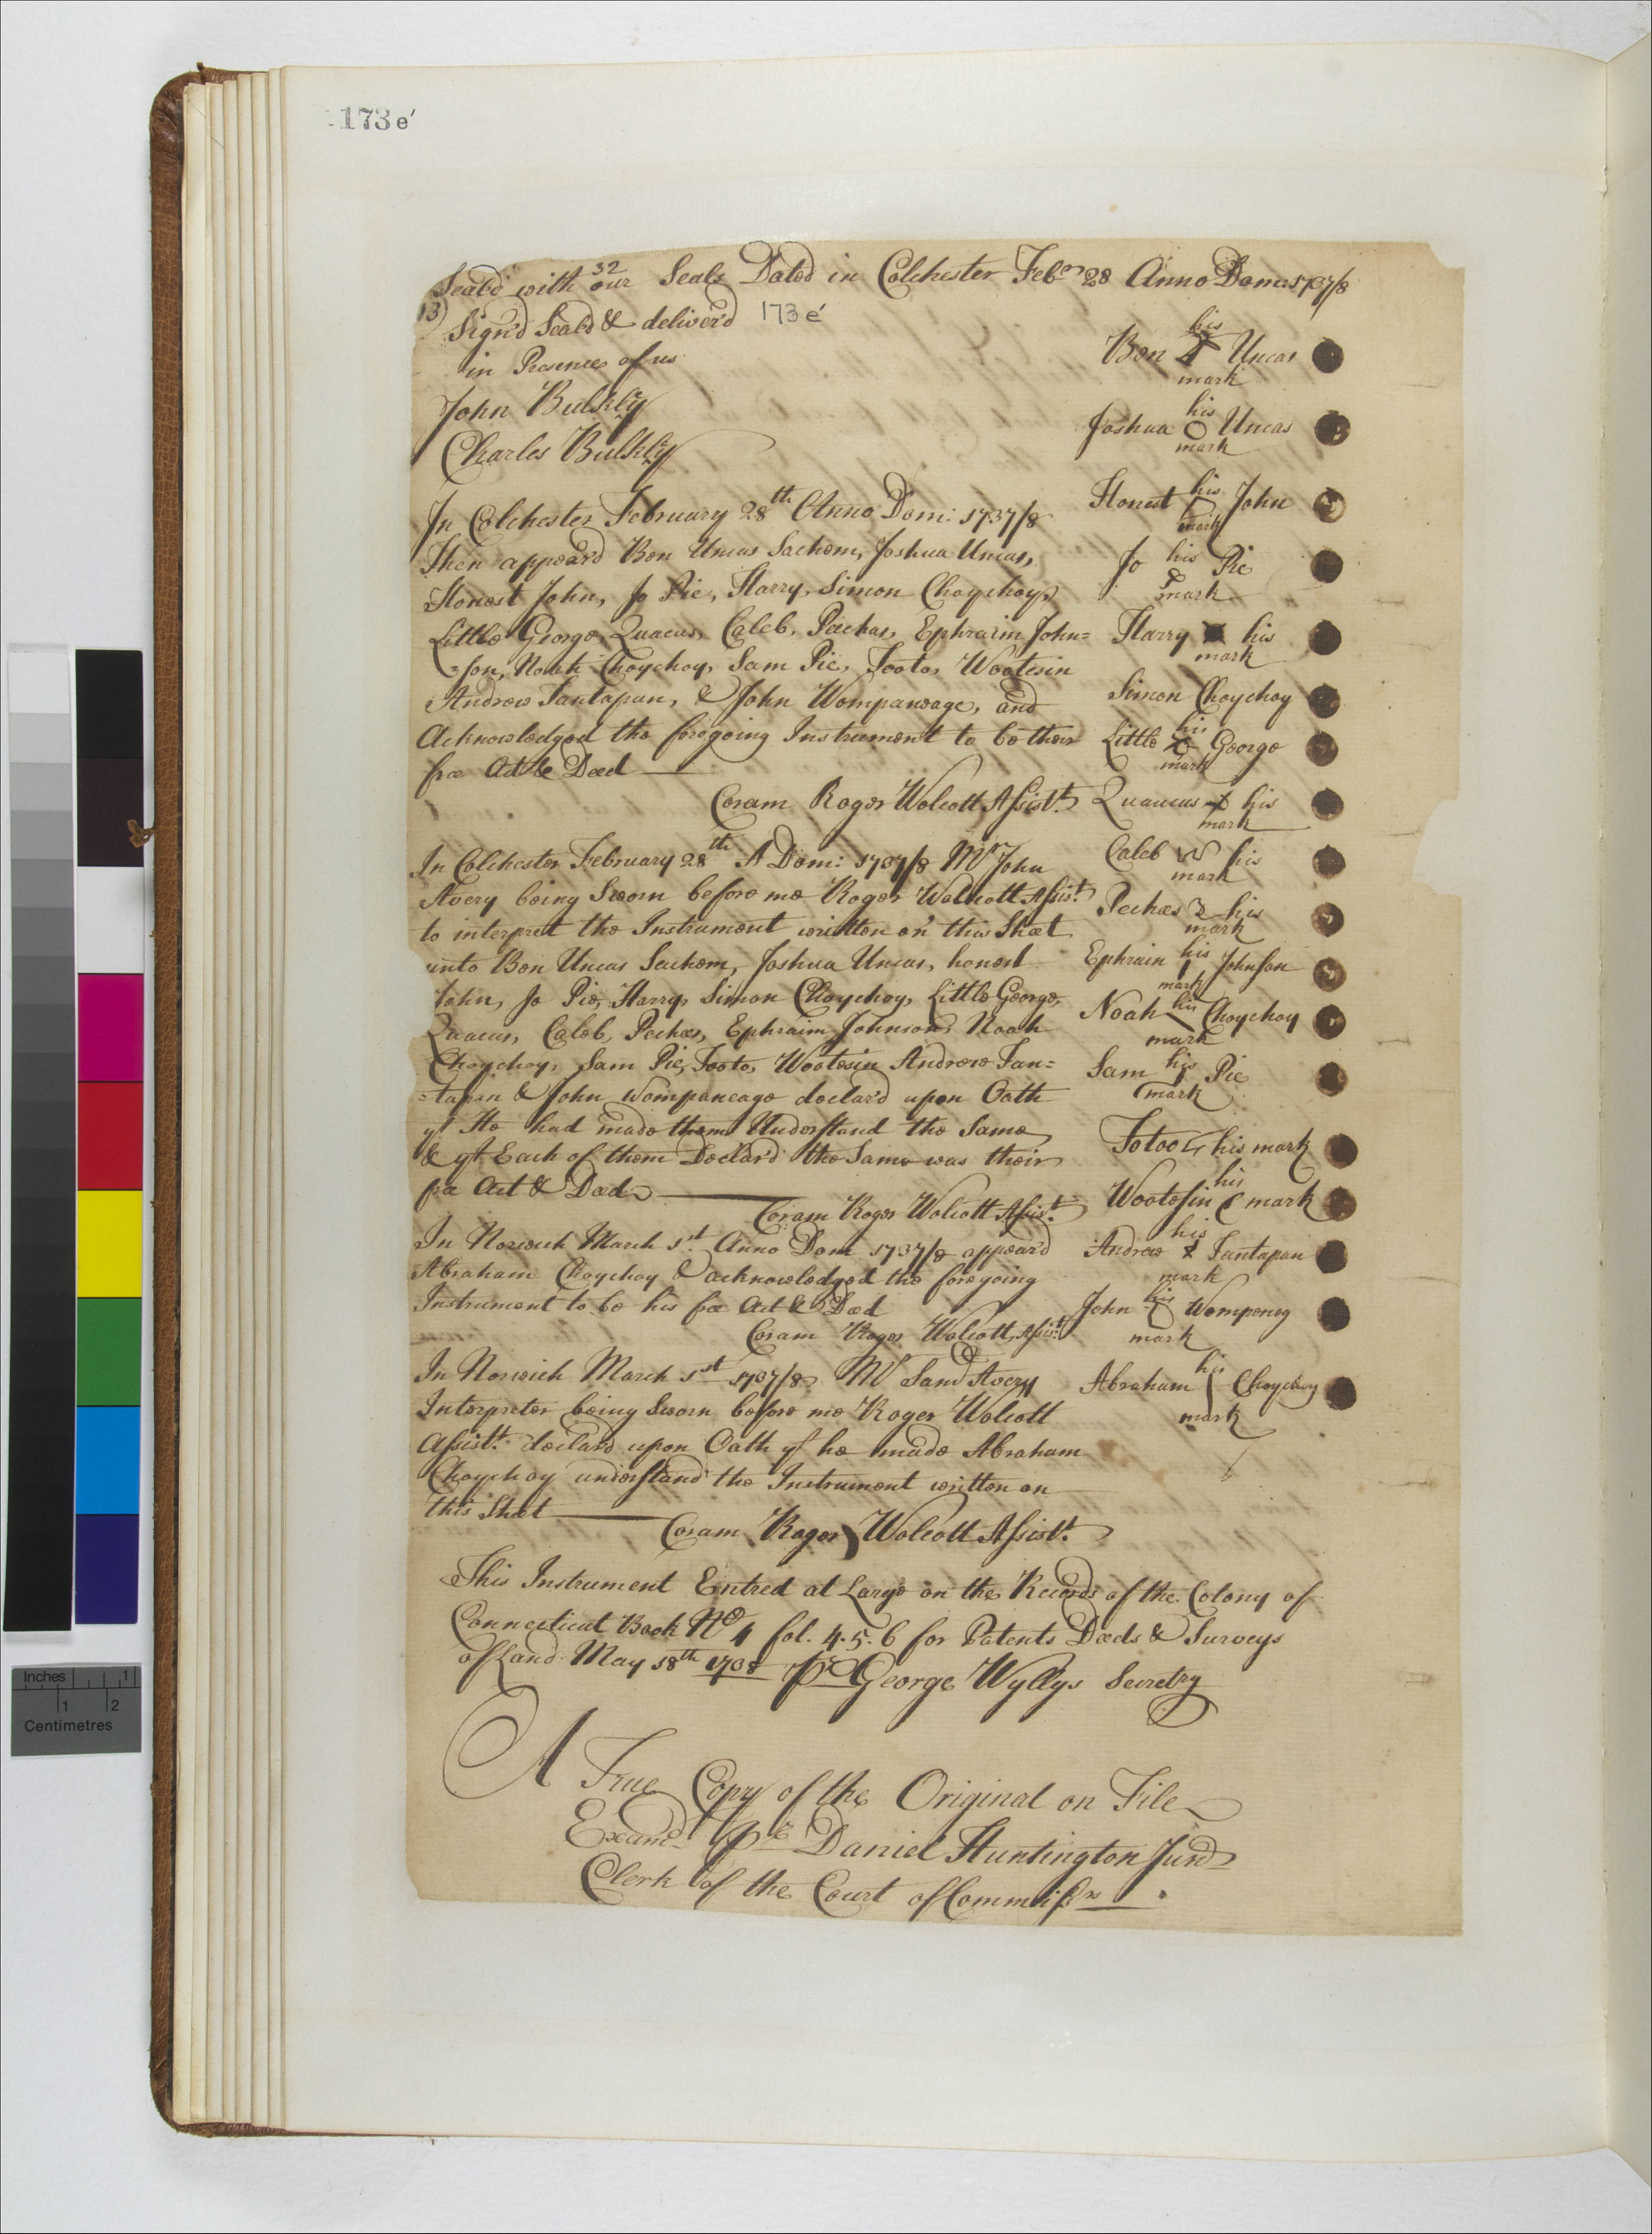 173 e'
32
Seal'd with our Seals Dated in Colchester Febry 28 Anno Dom: 1737/8
13)
173 e'
Sign'd Seal'd & deliver'd
in Presence of us
John Bulkly
Charles Bulkly
In Colchester February 28th Anno Dom: 1737/8
Then appear'd Ben Uncas Sachem, Joshua Uncas,
Honest John, Jo Pie, Harry, Simon Choychoy,
Little George, Quacus, Caleb, Pechas, Ephraim John=
=son, Noah Choychoy, Sam Pie, Tooto, Wootosin
Andrew Tantapan, & John Wompaneage, and
Acknowledged the foregoing Instrument to be their
free Act & Deed
Coram Roger Wolcott Assist.t
In Colchester February 28th A Dom: 1737/8 Mr John
Avery being Sworn before me Roger Wolcott Assist.t
to interpret the Instrument written on this Sheet
unto Ben Uncas Sachem, Joshua Uncas, honest
John, Jo Pie, Harry, Simon Choychoy, Little George,
Quacus, Caleb, Pechas, Ephraim Johnson, Noah
Choychoy, Sam Pie, Tooto, Wootosin Andrew Tan=
=tapan & John Wompaneage declar'd upon Oath
yt He had made them Understand the Same
& yt Each of them Declar'd the Same was their
free Act & Deed
Coram Roger Wolcott Assist.t
In Norwich March 1st Anno Dom 1737/8 appear'd
Abraham Choychoy & acknowledged the foregoing
Instrument to be his free Act & Deed
Coram Roger Wolcott, Assist.t
In Norwich March 1st 1737/8 Mr Saml Avery
Interpreter being Sworn before me Roger Wolcott
Assist.t declar'd upon Oath yt he made Abraham
Choychoy understand the Instrument written on
this Sheet
Coram Roger Wolcott Assist.t
his
Ben Uncas
mark
his
Joshua Uncas
mark
Honest his John
mark
Jo his Pie
mark
Harry his
mark
Simon Choychoy
his
Little George
mark
Quacus his
mark
Caleb his
mark
Pechas his
mark
Ephraim his Johnson
mark
Noah his Choychoy
mark
Sam his Pie
mark
Totoo his mark
his
Wootosin mark
his
Andrew Tantapan
mark
John his Womponeg
mark
his
Abraham Choychoy
mark
This Instrument Entred at Large on the Records of the Colony of
Connecticut Book No 4 fol. 4. 5. 6 for Patents Deeds & Surveys
of Land May 18th 1738 pr George Wyllys Secretry
A True Copy of the Original on File
Examd pr Daniel Huntington Junr
Clerk of the Court of Commissrs